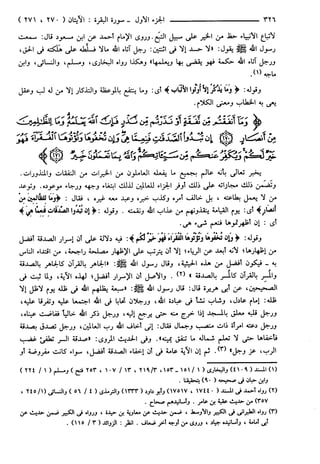 ٣٢٦ الجزء الأول - سورة البقرة : الآيتان ( ٢٧٠ ، ٢٧١ )
لأتباع الأنبياء حظ من الخير على سبيل التبع. وروى الإمام أحمد عن ابن مسعود قال: سمعت
رسول الله ﷺ يقول: «لا حسد إلا في اثنتين: رجل آتاه الله مالاً فسلَّطه على هلكته في الحق،
ورجل آتاه الله حكمة فهو يقضي بها ويعلمها» وهكذا رواه البخاري، ومسلم، والنسائي، وابن
ماجه (١).
وقوله: ﴿ وَمَا يَذَّكَّرُ إِلَّا أُوْلُوا الْأَلْبَابِ ﴾ أي: وما ينتفع بالموعظة والتذكار إلا من له لب وعقل
يعي به الخطاب ومعنى الكلام.
وَمَا أَنفَقْتُم مِّن نَّفَقَةٍ أَوْ نَذَرْتُم مِّن نَّذْرٍ فَإِنَّ اللَّهَ يَعْلَمُهُ وَمَا لِلظَّالِمِينَ
مِنْ أَنصَارٍ ۝ إِن تُبْدُوا الصَّدَقَاتِ فَنِعِمَّا هِيَ وَإِن تُخْفُوهَا وَتُؤْتُوهَا الْفُقَرَاءَ
فَهُوَ خَيْرٌ لَّكُمْ وَيُكَفِّرُ عَنكُم مِّن سَيِّئَاتِكُمْ وَاللَّهُ بِمَا تَعْمَلُونَ خَبِيرٌ ۝
يخبر تعالى بأنه عالم بجميع ما يفعله العاملون من الخيرات من النفقات والمنذورات.
وتضمن ذلك مجازاته على ذلك أوفر الجزاء للعاملين لذلك ابتغاء وجهه ورجاء موعوده. وتوعد
من لا يعمل بطاعته ، بل خالف أمره وكذب خبره وعبد معه غيره ، فقال : ﴿ وَمَا لِلظَّالِمِينَ مِنْ
أَنصَارٍ ﴾ أي: يوم القيامة ينقذونهم من عذاب الله ونقمته . وقوله : ﴿ إِن تُبْدُوا الصَّدَقَاتِ فَنِعِمَّا هِيَ ﴾
أي : إن أظهرتموها فنعم شيء هي.
وقوله: ﴿ وَإِن تُخْفُوهَا وَتُؤْتُوهَا الْفُقَرَاءَ فَهُوَ خَيْرٌ لَّكُمْ ﴾: فيه دلالة على أن إسرار الصدقة أفضل
من إظهارها؛ لأنه أبعد عن الرياء؛ إلا أن يترتب على الإظهار مصلحة راجحة، من اقتداء الناس
به ، فيكون أفضل من هذه الحيثية، وقال رسول الله ﷺ: «الجاهر بالقرآن كالجاهر بالصدقة
والمسر بالقرآن كالمسر بالصدقة » (٢) . والأصل أن الإسرار أفضل؛ لهذه الآية، ولما ثبت في
الصحيحين، عن أبي هريرة قال: قال رسول الله ﷺ: «سبعة يظلهم الله في ظله يوم لا ظل إلا
ظله: إمام عادل، وشاب نشأ في عبادة الله، ورجلان تحابا في الله اجتمعا عليه وتفرقا عليه،
ورجل قلبه معلق بالمسجد إذا خرج منه حتى يرجع إليه، ورجل ذكر الله خالياً ففاضت عيناه،
ورجل دعته امرأة ذات منصب وجمال فقال: إني أخاف الله رب العالمين، ورجل تصدق بصدقة
فأخفاها حتى لا تعلم شماله ما تنفق يمينه». وفي الحديث المروي: «صدقة السر تطفئ غضب
الرب، عز وجل» (٣). ثم إن الآية عامة في أن إخفاء الصدقة أفضل، سواء كانت مفروضة أو
(١) المسند (٤١٠٩) والبخاري ( ١ / ١٥١ - ١٥٣، ٢١٩/١٣، ١٠٧ / ١٣ ، ٢٥٣ فتح ) ومسلم ( ١ / ٢٢٤ )
وابن حبان في صحيحه ( ٩٠ ) بتحقيقنا .
(٢) رواه أحمد في المسند ( ١٧٤٤٠، ١٧٥١٧ ) وأبو داود ( ١٣٣٣ ) والترمذي ( ٤ / ٥٦ ) والنسائي (١/٢٤٥ ،
٣٥٧) من حديث عقبة بن عامر . وأسانيدهم صحاح .
(٣) رواه الطبراني في الكبير والأوسط ، ضمن حديث، عن معاوية بن حيدة ، ورواه في الكبير ضمن حديث عن
أبي أمامة ، وأسانيده جياد ، وروي من أوجه أخر ضعاف . انظر : الزوائد ( ٣ / ١١٥ ) .